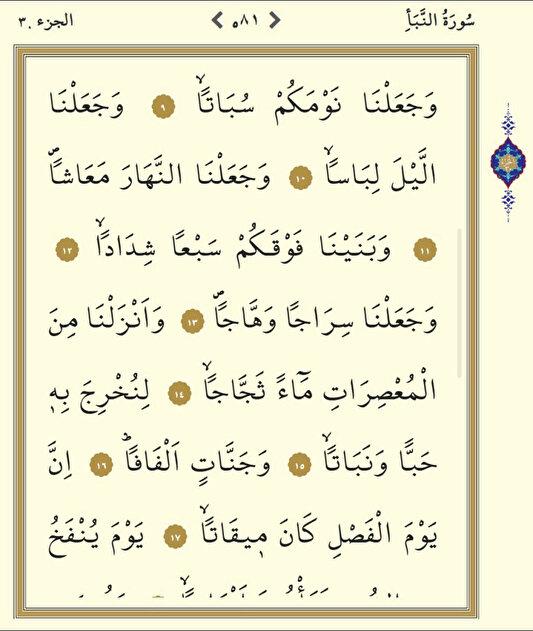 سُورَةُ النَّبَأِ ٥٨١ الجزء ٣٠
وَجَعَلْنَا نَوْمَكُمْ سُبَاتًاۙ ٩ وَجَعَلْنَا
الَّيْلَ لِبَاسًاۙ ١٠ وَجَعَلْنَا النَّهَارَ مَعَاشًاۖ
١١ وَبَنَيْنَا فَوْقَكُمْ سَبْعًا شِدَادًاۙ ١٢
وَجَعَلْنَا سِرَاجًا وَهَّاجًاۖ ١٣ وَاَنْزَلْنَا مِنَ
الْمُعْصِرَاتِ مَٓاءً ثَجَّاجًاۙ ١٤ لِنُخْرِجَ بِهٖ
حَبًّا وَنَبَاتًاۙ ١٥ وَجَنَّاتٍ اَلْفَافًاۜ ١٦ اِنَّ
يَوْمَ الْفَصْلِ كَانَ مٖيقَاتًاۙ ١٧ يَوْمَ يُنْفَخُ